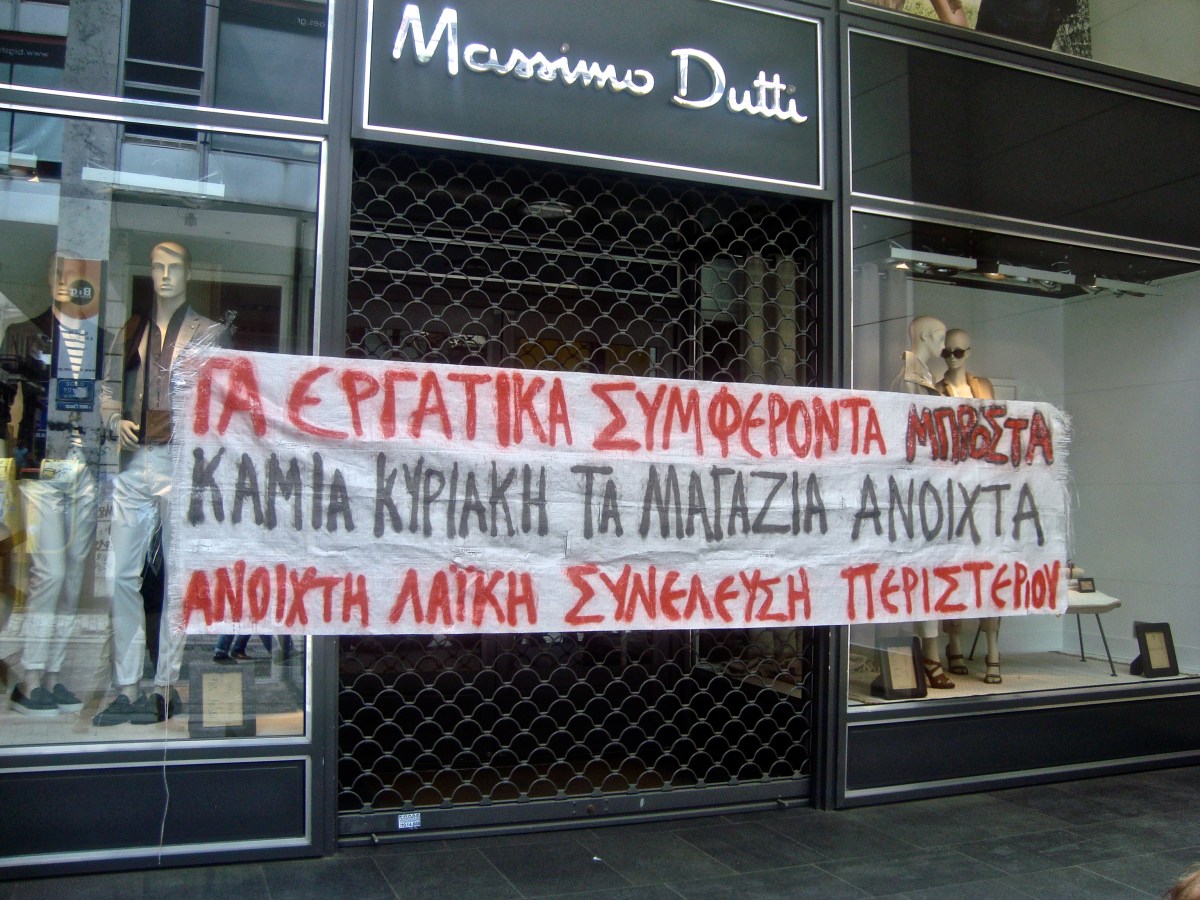 Massimo Dutti
ΤΑ ΕΡΓΑΤΙΚΑ ΣΥΜΦΕΡΟΝΤΑ ΜΠΡΟΣΤΑ
ΚΑΜΙΑ ΚΥΡΙΑΚΗ ΤΑ ΜΑΓΑΖΙΑ ΑΝΟΙΧΤΑ
ΑΝΟΙΧΤΗ ΛΑΪΚΗ ΣΥΝΕΛΕΥΣΗ ΠΕΡΙΣΤΕΡΙΟΥ